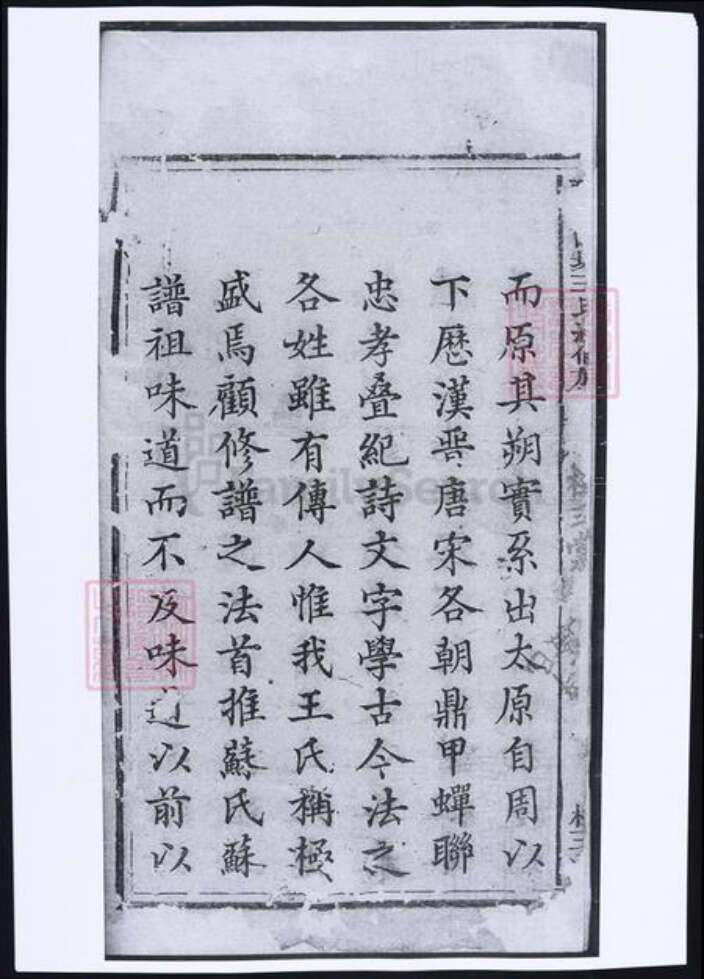 而原其朔實系出太原自周以
下歷漢晉唐宋各朝鼎甲蟬聯
忠孝疊紀詩文字學古今法之
各姓雖有傳人惟我王氏稱極
盛焉顧修譜之法首推蘇氏蘇
譜祖味道而不及味道以前以
FamilySearch